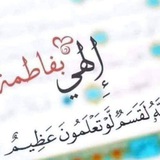 إلهي بفاطمة
لَقَسَمٌ لَّوْ تَعْلَمُونَ عَظِيمٌ